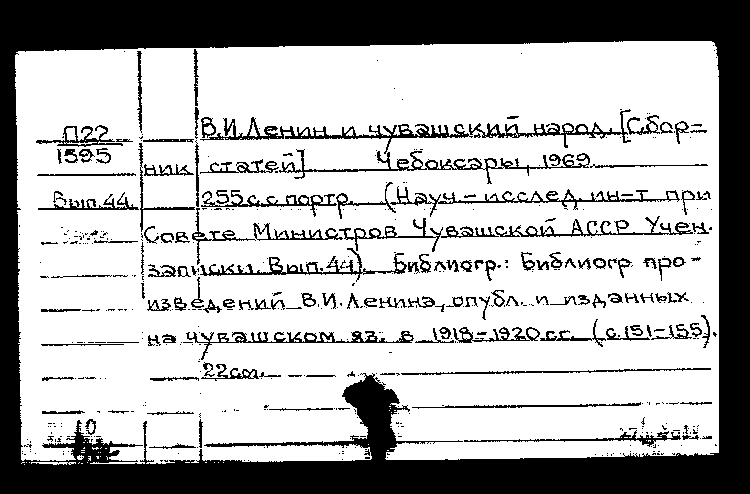 П22 В.И.Ленин и чувашский народ. [Сбор=
1595 ник статей] Чебоксары, 1969.
Вып.44. 255с. с портр. (Науч.-исслед. ин-т при
Совете Министров Чувашской АССР Учен.
записки. Вып.44). Библиогр.: Библиогр. про-
изведений В.И.Ленина, опубл. и изданных
на чувашском яз. в 1918-1920 гг. (с.151-155).
22см.
10